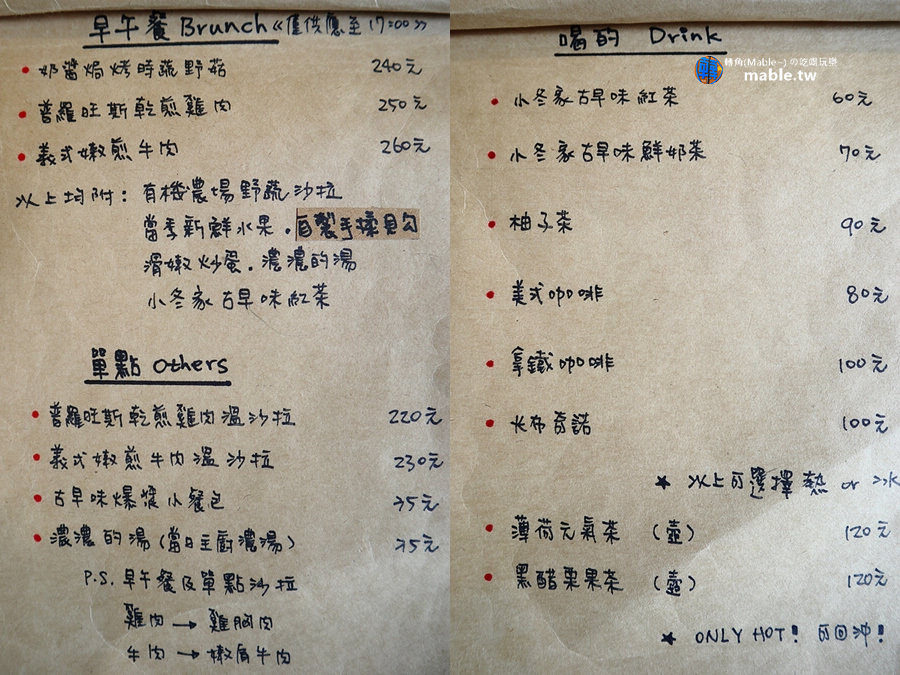 早午餐 Brunch《僅供應至 17:00》
奶醬焗烤時蔬野菇 240元
普羅旺斯乾煎雞肉 250元
義式嫩煎牛肉 260元
以上均附：有機農場野蔬沙拉
當季新鮮水果．自製手揉貝勾
滑嫩炒蛋．濃濃的湯
小冬家古早味紅茶
單點 others
普羅旺斯乾煎雞肉溫沙拉 220元
義式嫩煎牛肉溫沙拉 230元
古早味爆漿小餐包 35元
濃濃的湯(當日主廚濃湯) 35元
P.S. 早午餐及單點沙拉
雞肉→雞胸肉
牛肉→嫩肩牛肉
喝的 Drink
轉角(Mable~)の吃喝玩樂
mable.tw
小冬家古早味紅茶 60元
小冬家古早味鮮奶茶 70元
柚子茶 90元
美式咖啡 80元
拿鐵咖啡 100元
卡布奇諾 100元
★ 以上可選擇熱 or 冰
薄荷元氣茶 (壺) 120元
黑醋栗果茶 (壺) 120元
★ ONLY HOT! 可回沖!